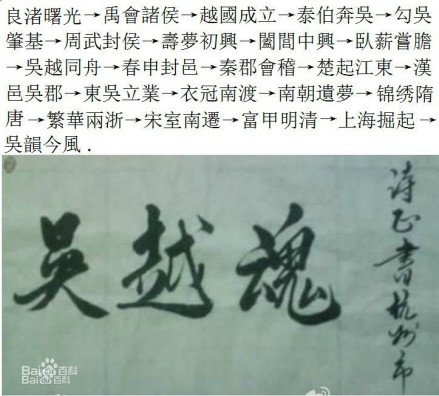 良渚曙光→禹會諸侯→越國成立→泰伯奔吳→勾吳
肇基→周武封侯→壽夢初興→闔閭中興→臥薪嘗膽
→吳越同舟→春申封邑→秦郡會稽→楚起江東→漢
邑吳郡→東吳立業→衣冠南渡→南朝遺夢→锦绣隋
唐→繁華兩浙→宋室南遷→富甲明清→上海掘起→
吳韻今風.
吳越魂
诗正書杭州市
Baidu百科
Baidu百科